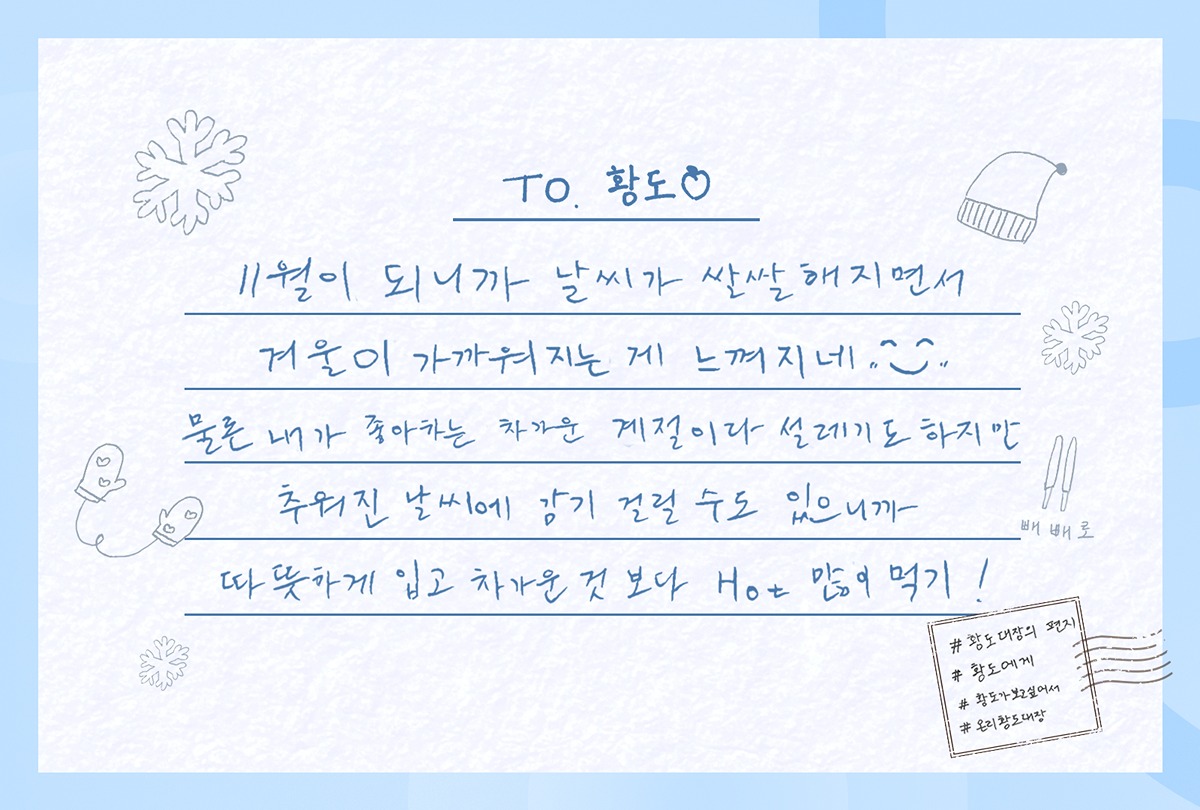 TO. 황도
11월이 되니까 날씨가 쌀쌀해지면서
겨울이 가까워지는 게 느껴지네
물론 내가 좋아하는 차가운 계절이다 설레기도 하지만
추워진 날씨에 감기 걸릴 수도 있으니까
따뜻하게 입고 차가운 것 보다 Hot 많이 먹기!
빼빼로
# 황도대장의 편지
# 황도에게
# 황도가보고싶어서
# 온리황도대장